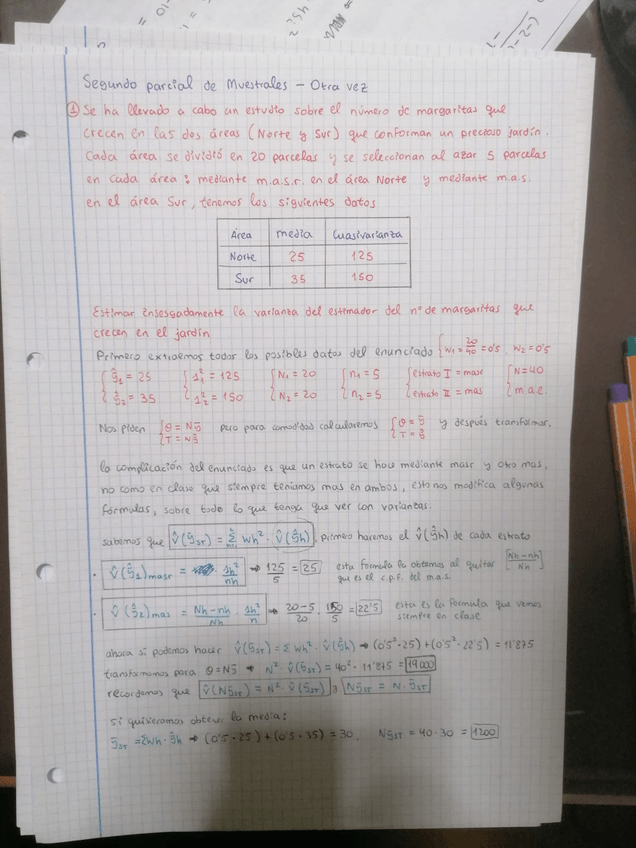 Segundo parcial de Muestrales - Otra vez
① Se ha llevado a cabo un estudio sobre el número de margaritas que
crecen en las dos áreas (Norte y Sur) que conforman un precioso jardín.
Cada área se dividió en 20 parcelas y se seleccionan al azar 5 parcelas
en cada área: mediante m.a.s.r. en el área Norte y mediante m.a.s.
en el área Sur, tenemos los siguientes datos
Área media Cuasivarianza
Norte 25 125
Sur 35 150
Estimar insesgadamente la varianza del estimador del nº de margaritas que
crecen en el jardín
Primero extraemos todos los posibles datos del enunciado { W1 = 20/40 = 0'5, W2 = 0'5
{ ŷ1 = 25 { s²1 = 125 { N1 = 20 { n1 = 5 { estrato I = masr { N = 40
{ ŷ2 = 35 { s²2 = 150 { N2 = 20 { n2 = 5 { estrato II = mas { m.a.e.
Nos piden { θ = Nȳ pero para comodidad calcularemos { θ = ȳ y después transformar.
{ T = Nȳ { T = ŷ
la complicación del enunciado es que un estrato se hace mediante masr y otro mas,
no como en clase que siempre teníamos mas en ambos, esto nos modifica algunas
fórmulas, sobre todo lo que tenga que ver con varianzas.
sabemos que V̂(ȳST) = Σ Wh² · V̂(ŷh), primero haremos el V̂(ŷh) de cada estrato
· V̂(ŷ1)masr = sh²/nh → 125/5 = 25 esta formula la obtenemos al quitar [Nh-nh/Nh]
que es el c.p.f. del m.a.s.
· V̂(ŷ2)mas = Nh-nh/Nh · sh²/n → 20-5/20 · 150/5 = 22'5 esta es la formula que vemos
siempre en clase
ahora si podemos hacer V̂(ȳST) = Σ Wh² · V̂(ŷh) → (0'5² · 25) + (0'5² · 22'5) = 11'875
transformamos para θ = Nȳ → N² · V̂(ȳST) = 40² · 11'875 = 19000
recordemos que V̂(NȳST) = N² · V̂(ȳST) y NȳST = N · ȳST
si quisieramos obtener la media:
ȳST = ΣWh · ŷh → (0'5 · 25) + (0'5 · 35) = 30, NȳST = 40 · 30 = 1200